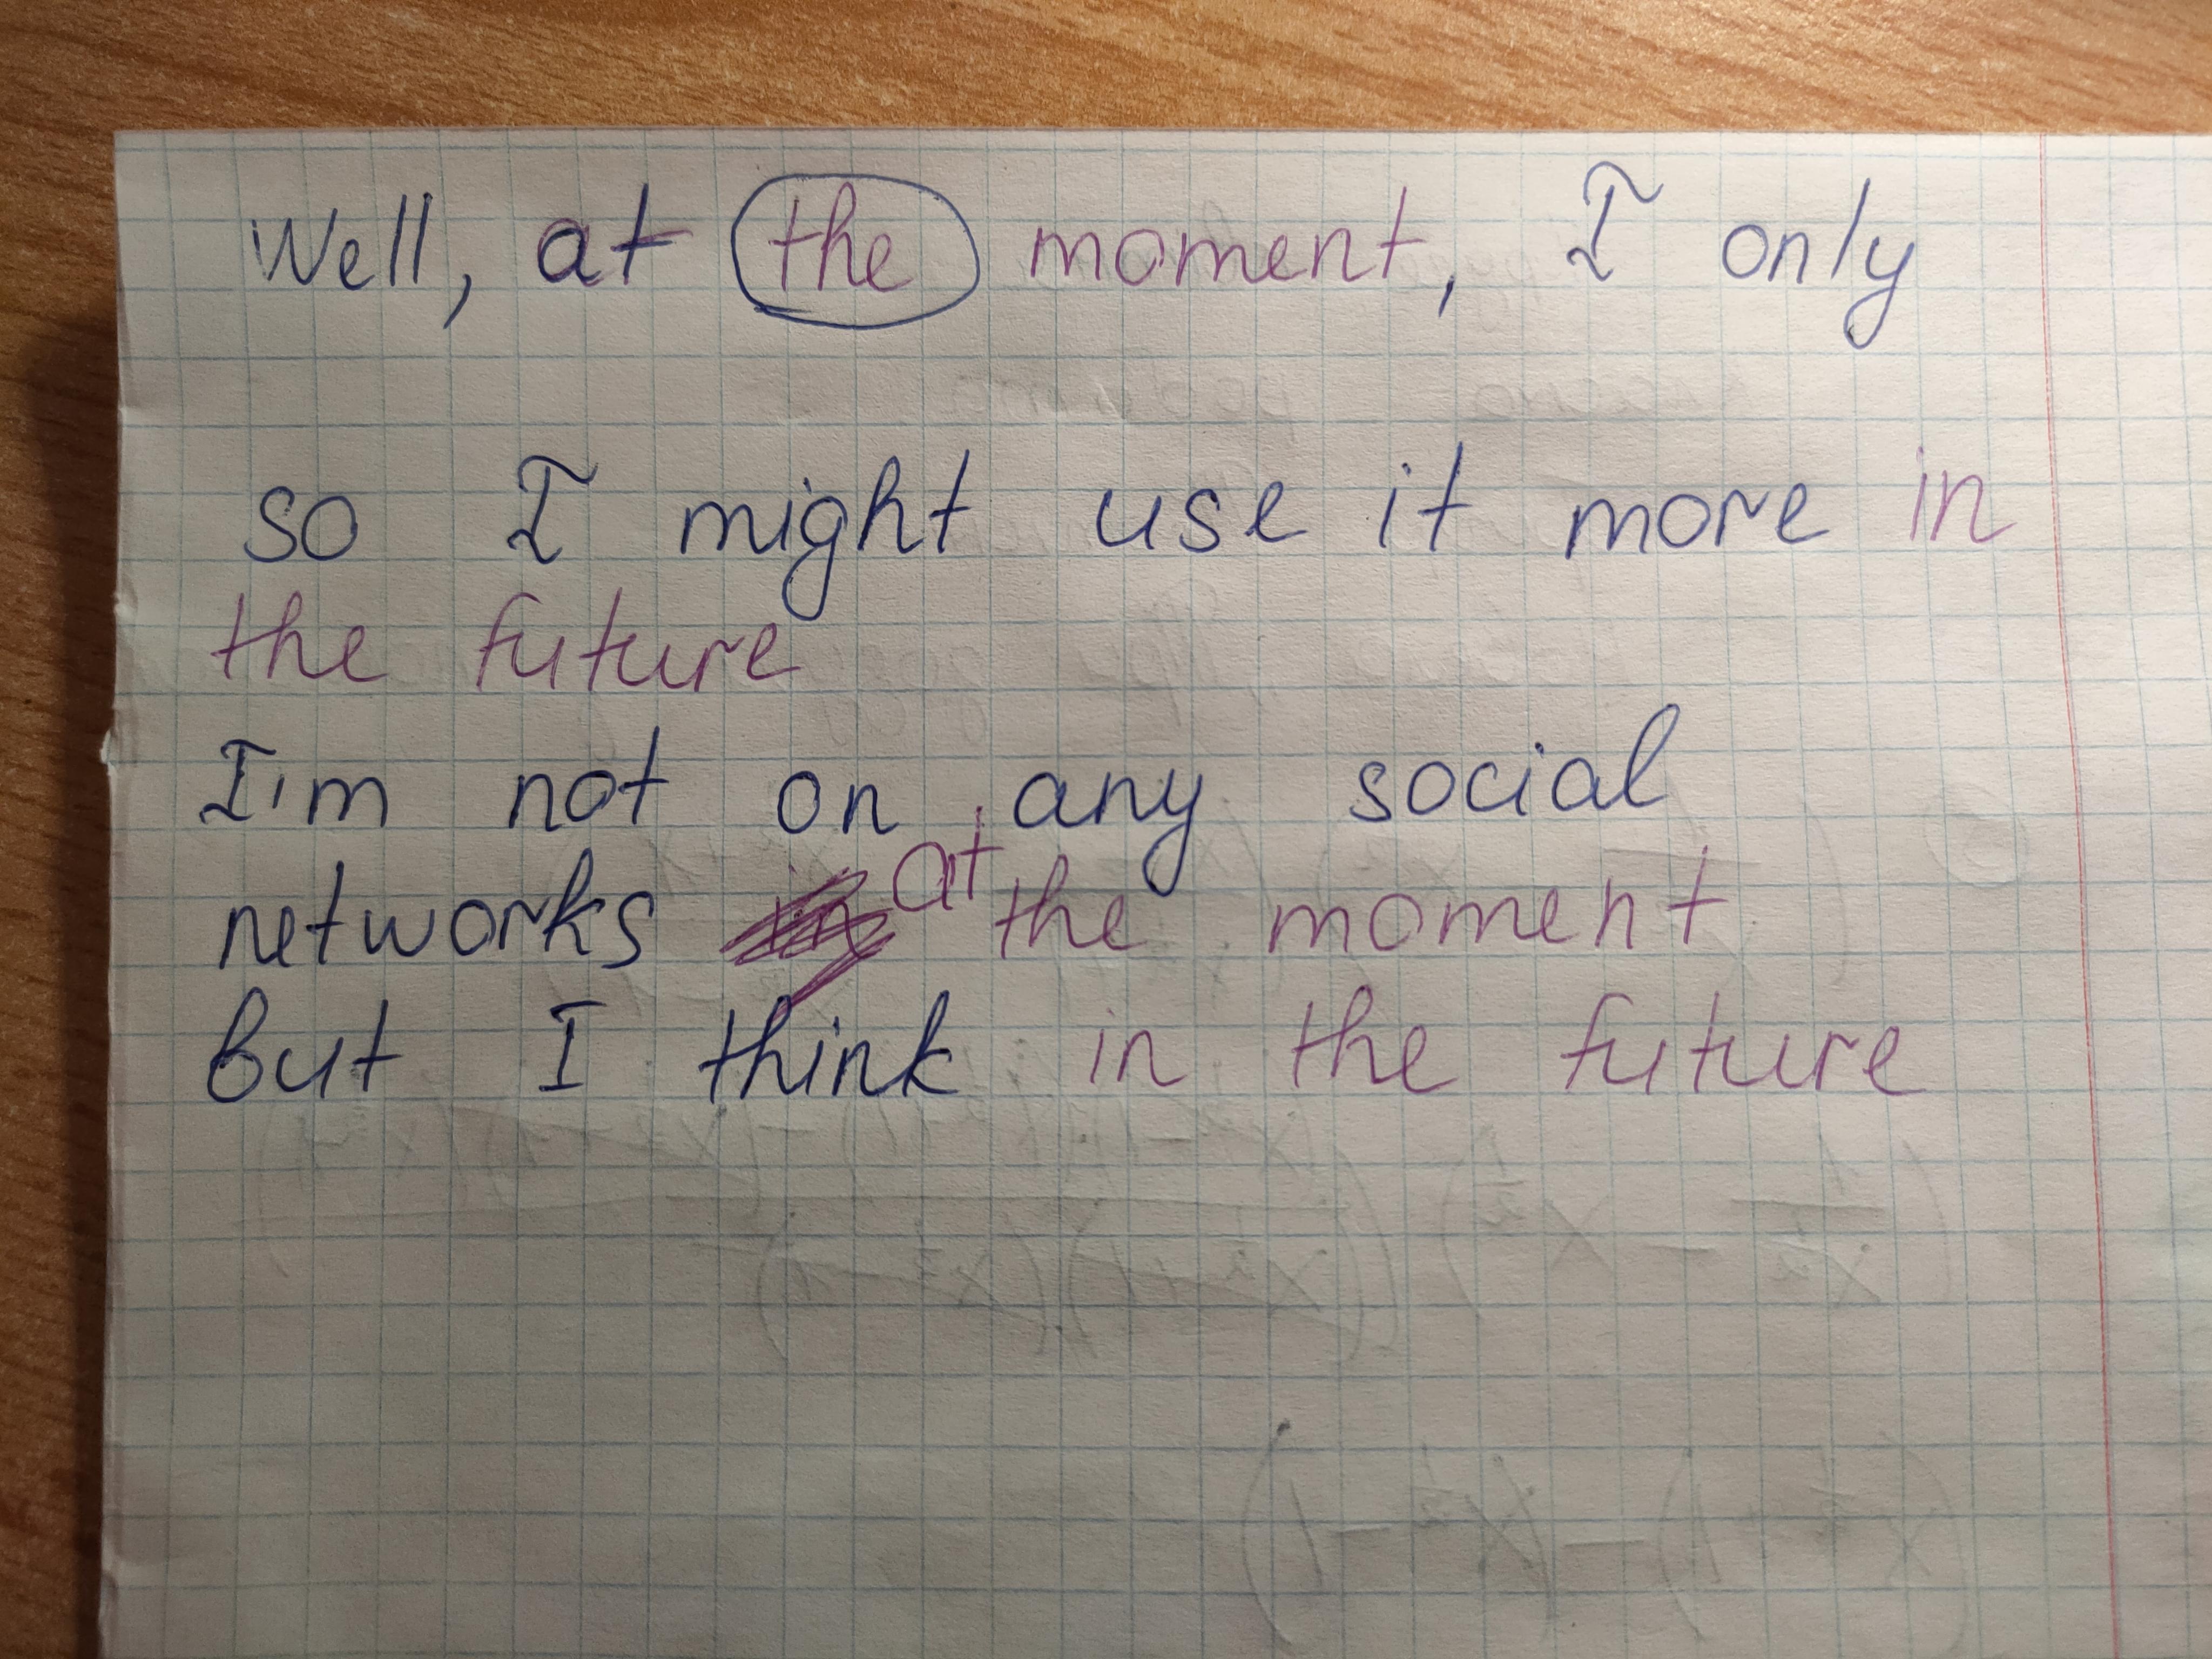 Well, at the moment, I only
so I might use it more in
the future
I'm not on any social
networks at the moment
but I think in the future